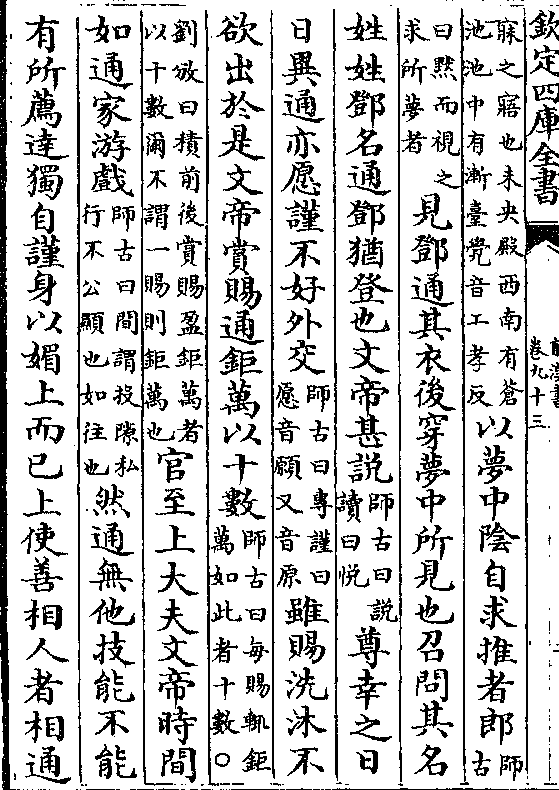 欽定四庫全書
卷九十三
寐之寤也未央殿西南有蒼
池池中有漸臺覺音工孝反
以夢中陰自求推者郎
師古
曰黙而視之
求所夢者
見鄧通其衣後穿夢中所見也召問其名
姓姓鄧名通鄧猶登也文帝甚説
師古曰説
讀曰悦
尊幸之日
日異通亦愿謹不好外交
師古曰專謹曰
愿音願又音原
雖賜洗沐不
欲出於是文帝賞賜通鉅萬以十數
師古曰每賜輒鉅
萬如此者十數○
劉攽曰積前後賞賜盈鉅萬者
以十數爾不謂一賜則鉅萬也
官至上大夫文帝時間
如通家游戲
師古曰間謂投隙私
行不公顯也如往也
然通無他技能不能
有所薦達獨自謹身以媚上而已上使善相人者相通